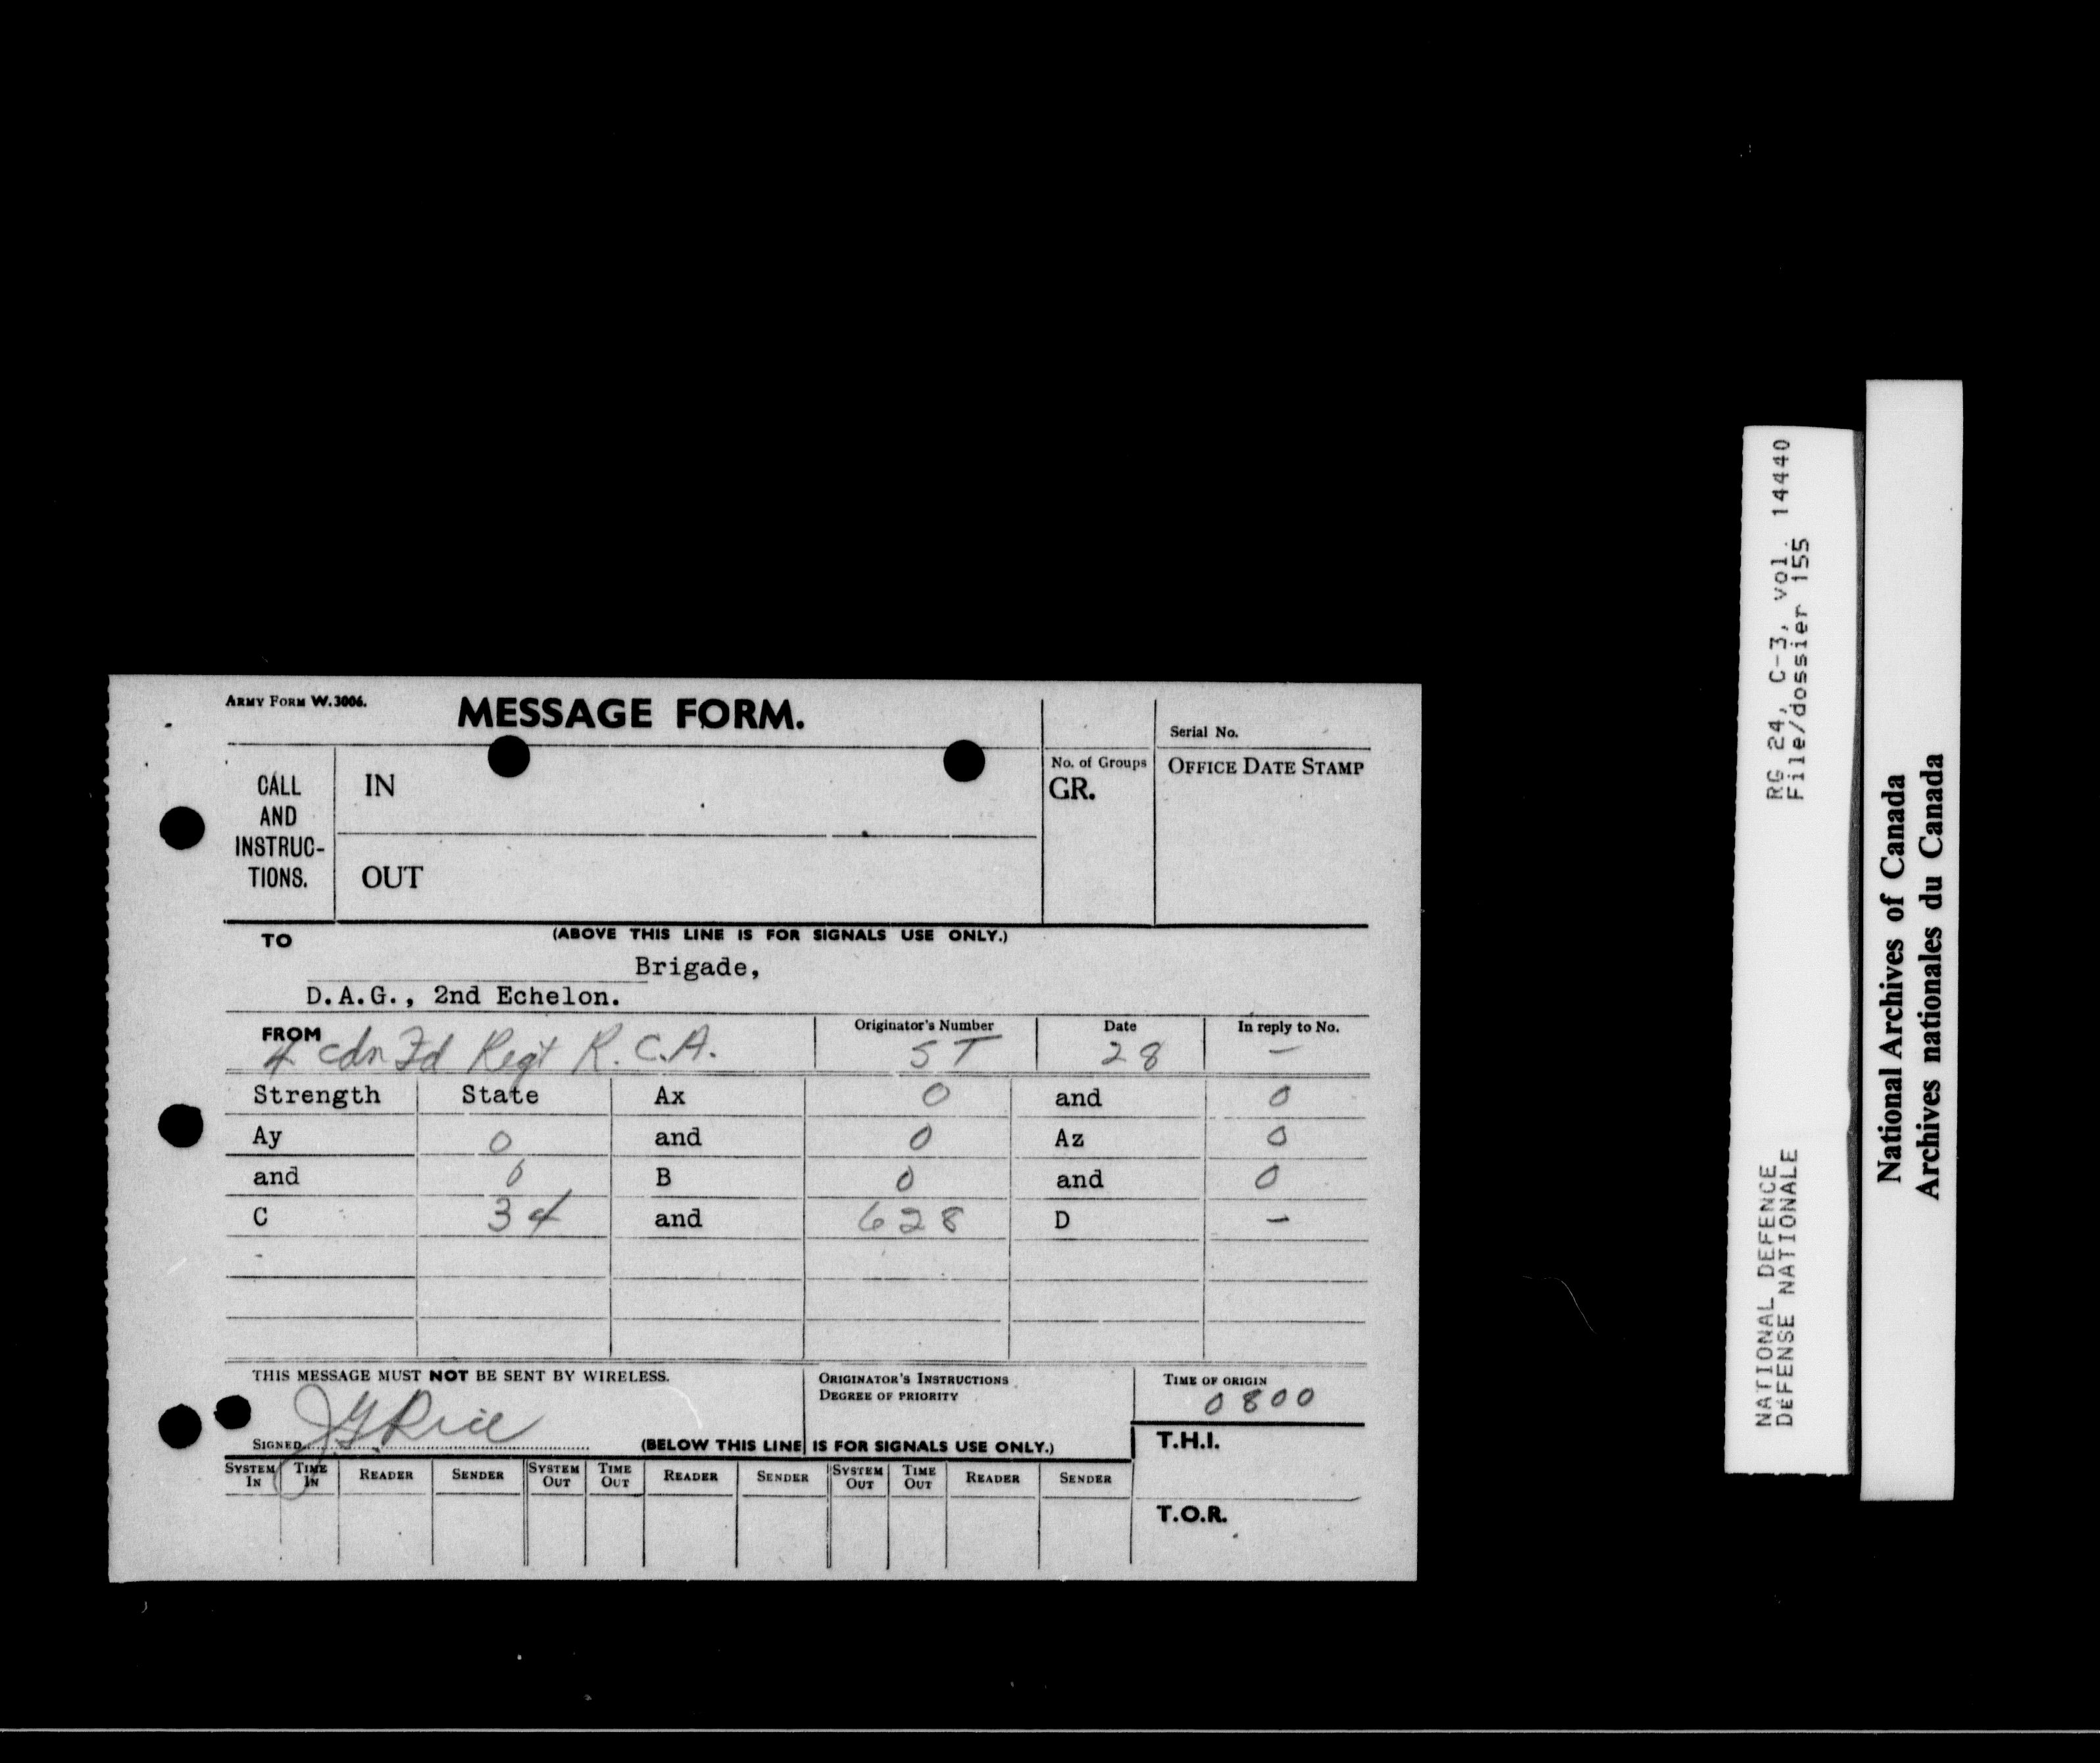 ARMY FORM W.3006.
MESSAGE FORM.
Serial No.
CALL AND INSTRUC-TIONS.
IN
No. of Groups
GR.
OFFICE DATE STAMP
OUT
TO
(ABOVE THIS LINE IS FOR SIGNALS USE ONLY.)
Brigade,
D.A.G., 2nd Echelon.
FROM
4 Cdn Fd Regt R.C.A.
Originator's Number
ST
Date
28
In reply to No.
—
Strength State Ax 0 and 0
Ay 0 and 0 Az 0
and 0 B 0 and 0
C 34 and 628 D —
THIS MESSAGE MUST NOT BE SENT BY WIRELESS.
ORIGINATOR'S INSTRUCTIONS
DEGREE OF PRIORITY
TIME OF ORIGIN
0800
SIGNED JG Rice
(BELOW THIS LINE IS FOR SIGNALS USE ONLY.)
T.H.I.
SYSTEM IN TIME IN READER SENDER SYSTEM OUT TIME OUT READER SENDER SYSTEM OUT TIME OUT READER SENDER
T.O.R.
NATIONAL DEFENCE RG 24, C-3, vol. 14440
DEFENSE NATIONALE File/dossier 155
National Archives of Canada
Archives nationales du Canada